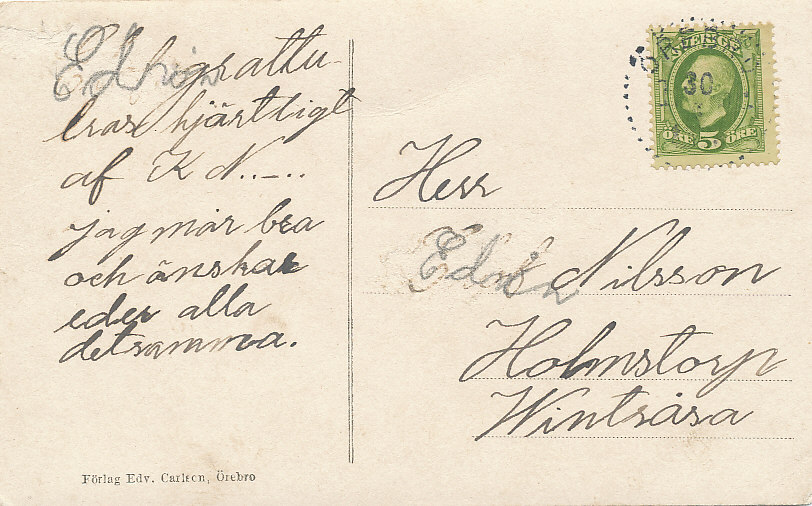 grattu-
leras hjärtligt
af K N.....
jag mår bra
och önskar
eder alla
detsamma.
Förlag Edv. Carlson, Örebro
ÖREBRO
30
SVERIGE
ÖRE 5 ÖRE
Herr
Edvin Nilsson
Holmstorp
Wintråsa